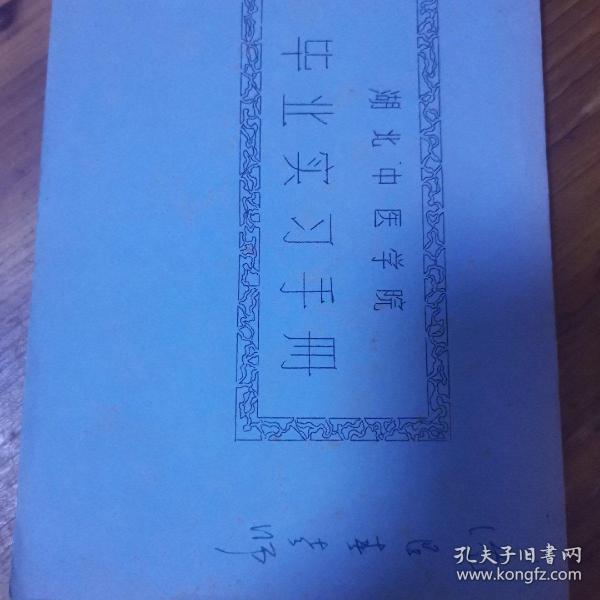 湖北中医学院
毕业实习手册
老师
孔夫子旧书网
www.kongfz.com